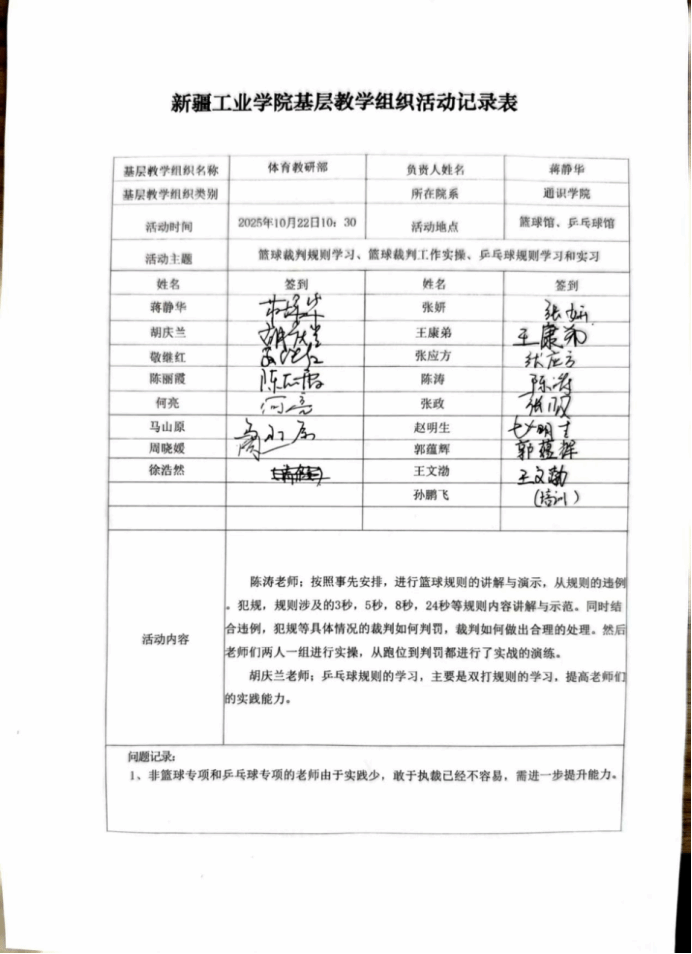 新疆工业学院基层教学组织活动记录表
基层教学组织名称 体育教研部 负责人姓名 蒋静华
基层教学组织类别 所在院系 通识学院
活动时间 2025年10月22日10：30 活动地点 篮球馆、乒乓球馆
活动主题 篮球裁判规则学习、篮球裁判工作实操、乒乓球规则学习和实习
姓名 签到 姓名 签到
蒋静华 蒋静华 张妍 张妍
胡庆兰 胡庆兰 王康弟 王康弟
敬继红 敬继红 张应方 张应方
陈丽霞 陈丽霞 陈涛 陈涛
何亮 何亮 张政 张政
马山原 赵明生 赵明生
周晓媛 郭蕴辉 郭蕴辉
徐浩然 王文渤 王文渤
孙鹏飞 (培训)
活动内容
陈涛老师：按照事先安排，进行篮球规则的讲解与演示，从规则的违例
。犯规，规则涉及的3秒，5秒，8秒，24秒等规则内容讲解与示范。同时结
合违例，犯规等具体情况的裁判如何判罚，裁判如何做出合理的处理。然后
老师们两人一组进行实操，从跑位到判罚都进行了实战的演练。
胡庆兰老师：乒乓球规则的学习，主要是双打规则的学习，提高老师们
的实践能力。
问题记录：
1、非篮球专项和乒乓球专项的老师由于实践少，敢于执裁已经不容易，需进一步提升能力。